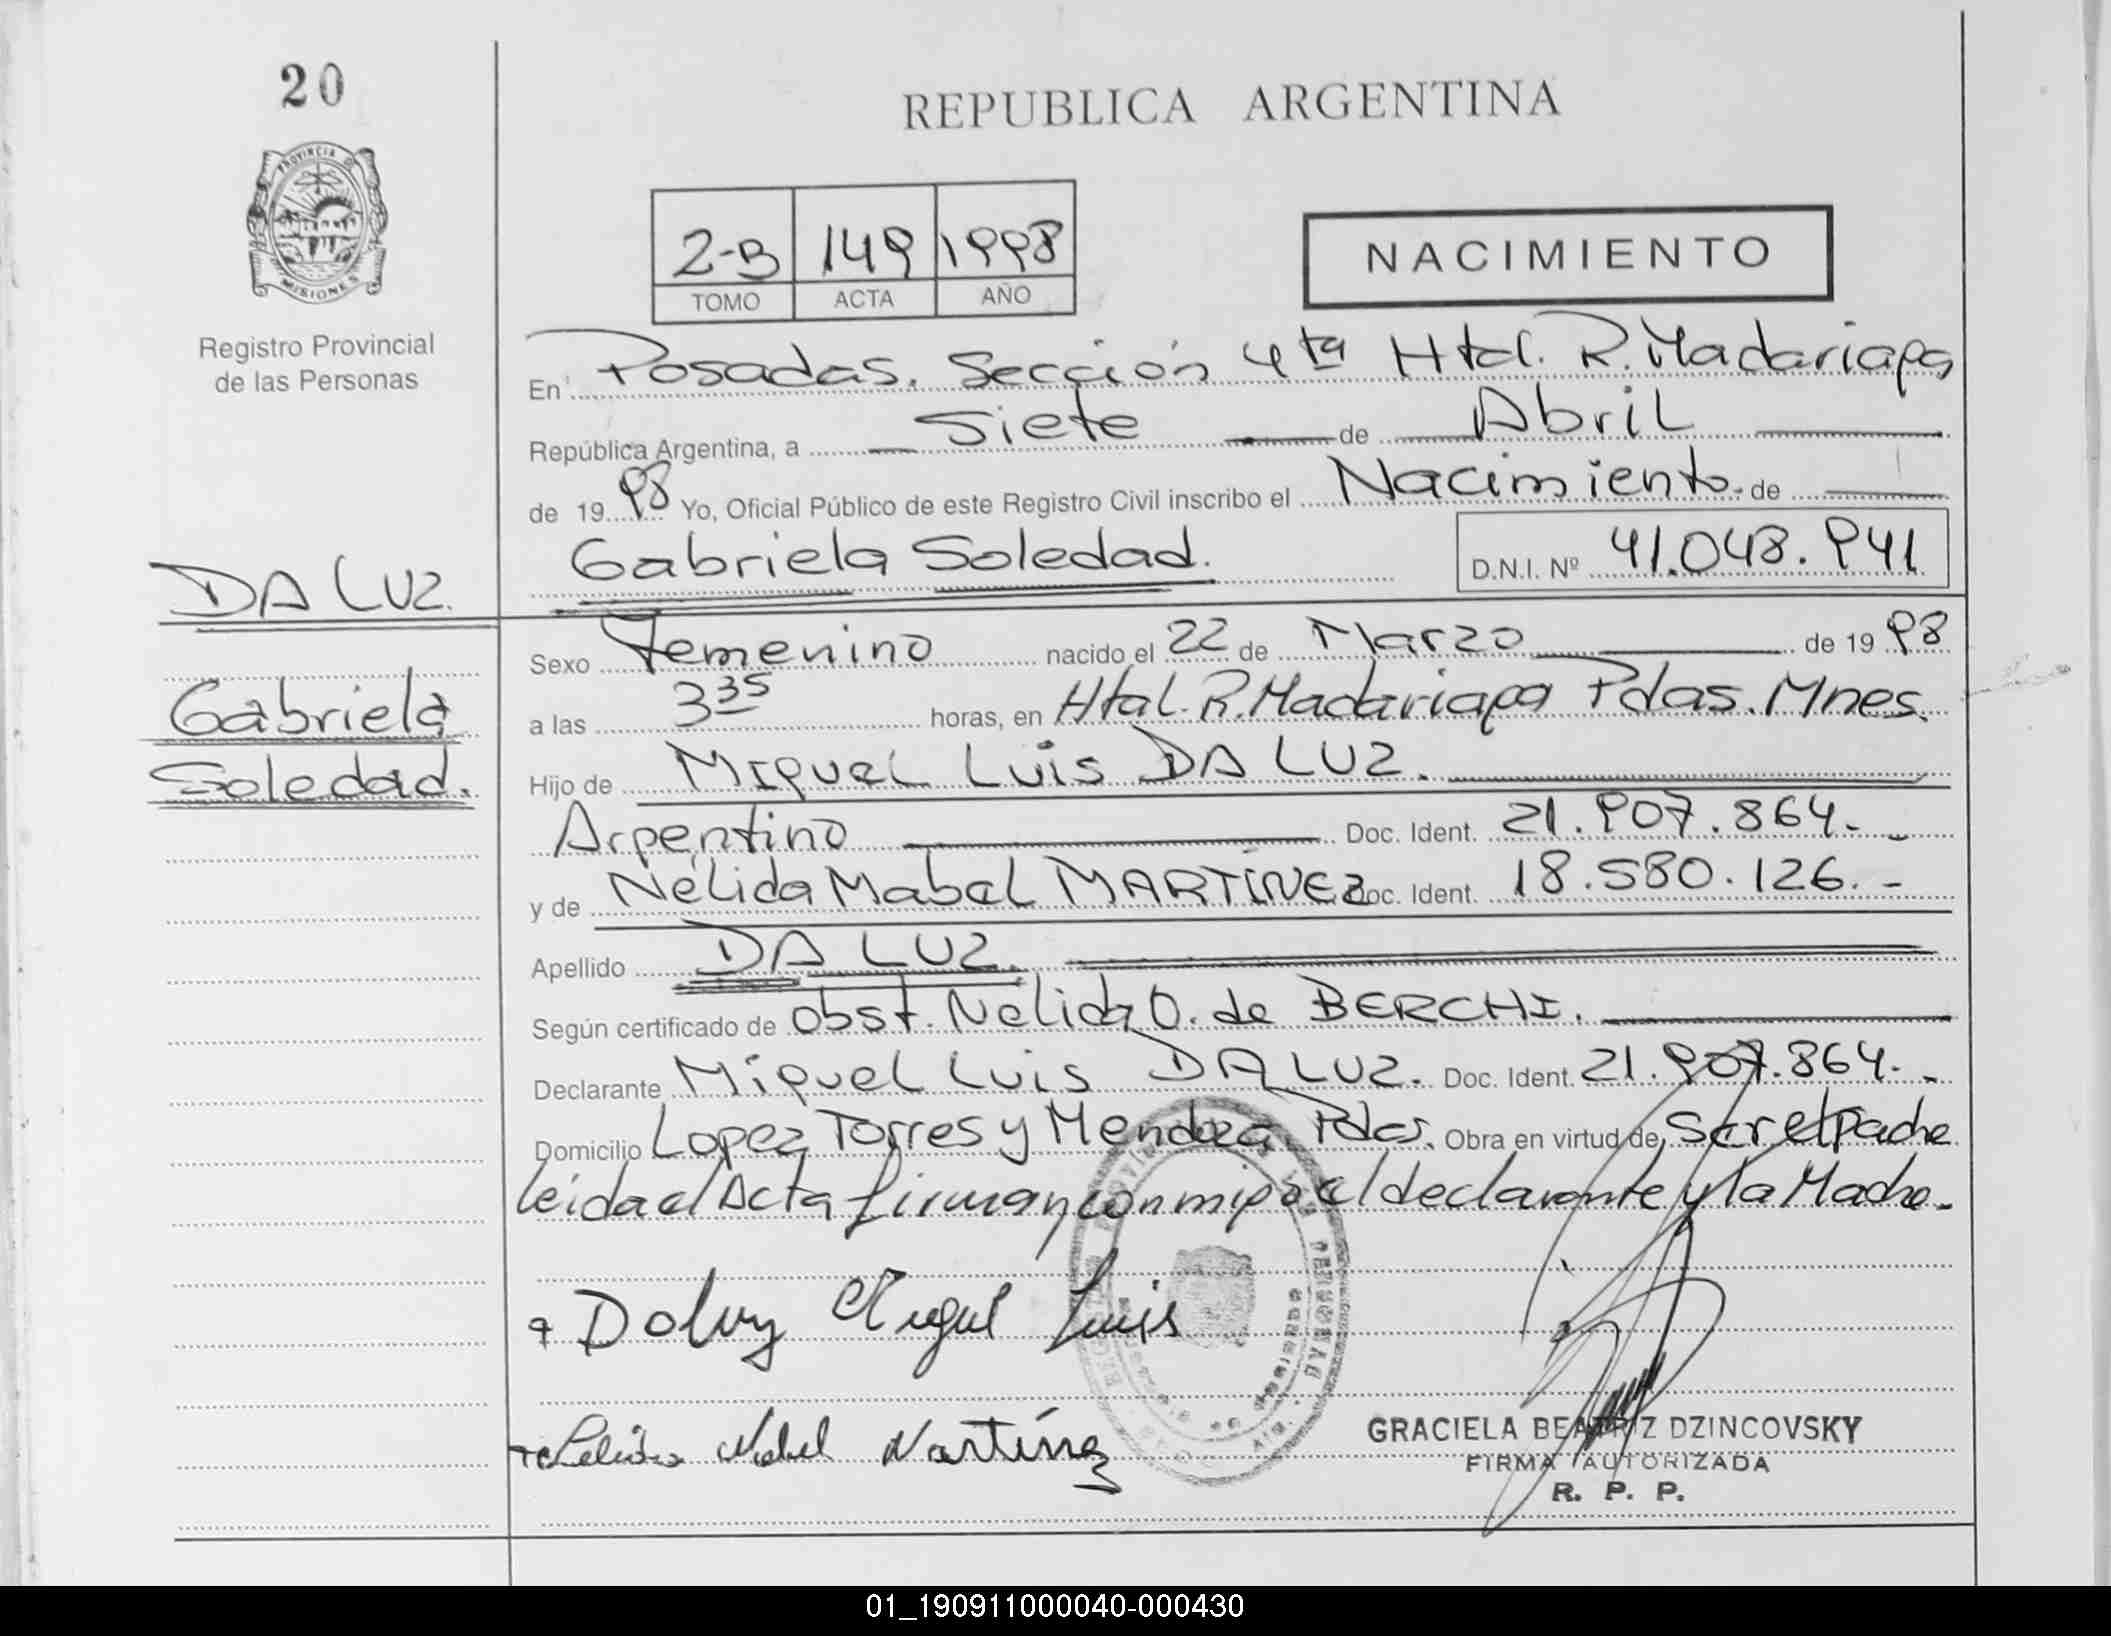 20
REPUBLICA ARGENTINA
PROVINCIA DE
MISIONES
Registro Provincial
de las Personas
2-B 149 1998
TOMO ACTA AÑO
NACIMIENTO
En Posadas. Sección 4ta Htal. R. Madariaga
República Argentina, a Siete de Abril
de 1998 Yo, Oficial Público de este Registro Civil inscribo el Nacimiento. de
Gabriela Soledad. D.N.I. Nº 41.048.941
DA LUZ.
Gabriela
Soledad.
Sexo Femenino nacido el 22 de Marzo de 1998
a las 3 35 horas, en Htal. R. Madariaga Pdas. Mnes.
Hijo de Miguel Luis DA LUZ.
Argentino Doc. Ident. 21.907.864.-
y de Nélida Mabel MARTÍNEZ Doc. Ident. 18.580.126.-
Apellido DA LUZ.
Según certificado de obst. Nelida O. de BERCHI.
Declarante Miguel Luis DA LUZ. Doc. Ident. 21.907.864.-
Domicilio Lopez Torres y Mendoza Pdas. Obra en virtud de ser el padre
leida el Acta firman conmigo el declarante y la Madre.-
Miguel Luis
Mabel Martínez
GRACIELA BEATRIZ DZINCOVSKY
FIRMA AUTORIZADA
R. P. P.
01_190911000040-000430